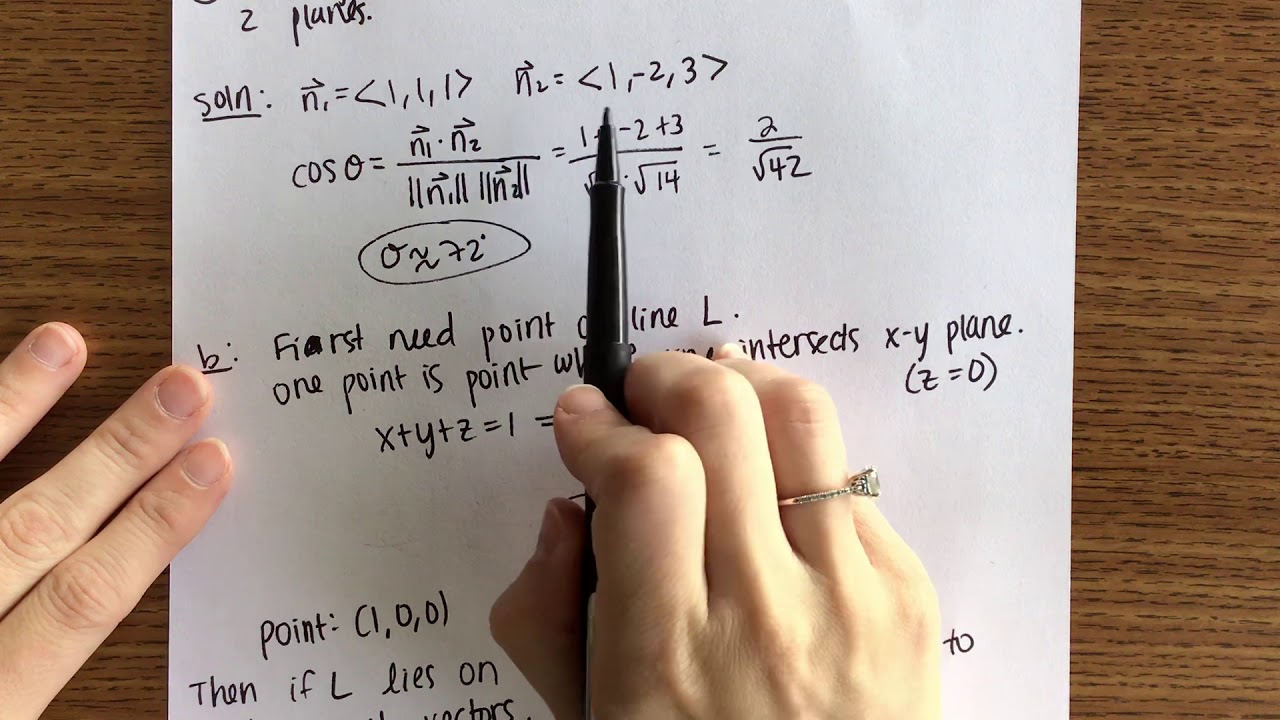 2 planes.
soln: n⃗₁ = <1,1,1> n⃗₂ = <1,-2,3>
cos θ = n⃗₁ · n⃗₂ / ||n⃗₁|| ||n⃗₂|| = 1 -2 +3 / · √14 = 2 / √42
θ ≈ 72°
b: First need point line L.
one point is point intersects x-y plane.
(z = 0)
x+y+z = 1 =
point: (1,0,0)
to
Then if L lies on
vectors.